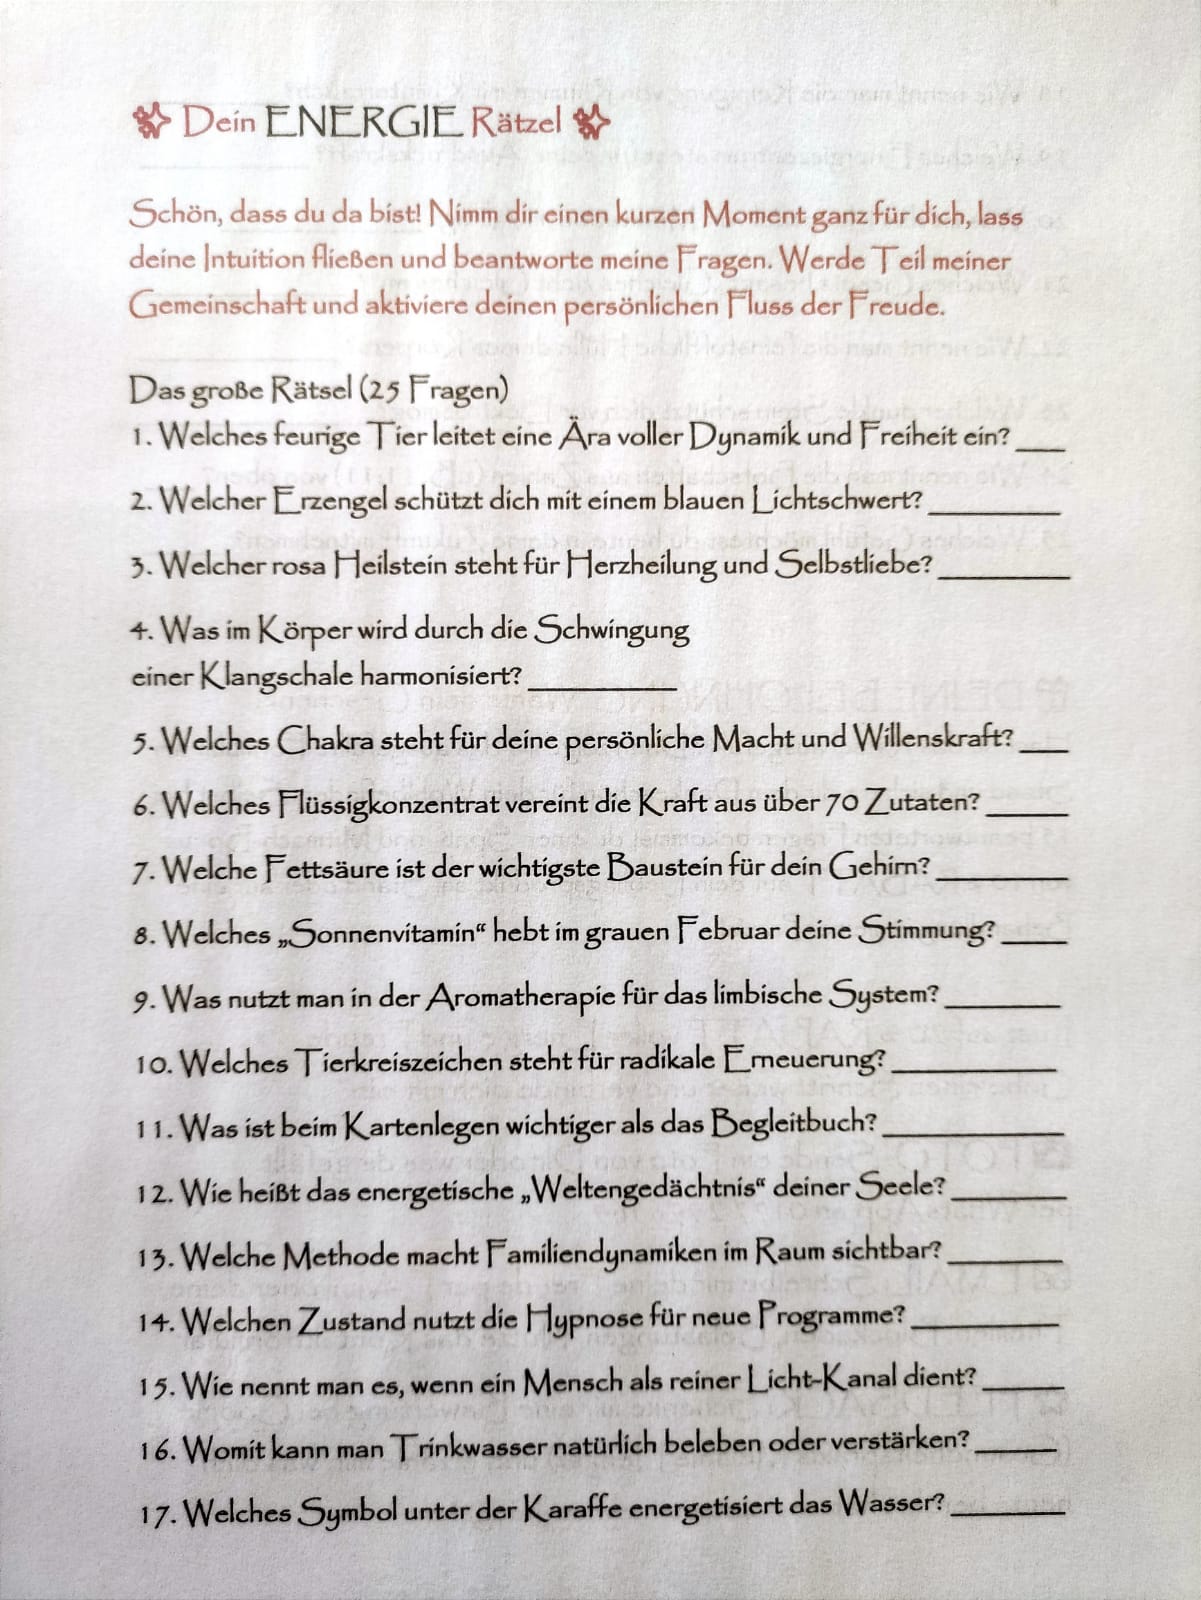 Dein ENERGIE Rätzel
Schön, dass du da bist! Nimm dir einen kurzen Moment ganz für dich, lass
deine Intuition fließen und beantworte meine Fragen. Werde Teil meiner
Gemeinschaft und aktiviere deinen persönlichen Fluss der Freude.
Das große Rätsel (25 Fragen)
1. Welches feurige Tier leitet eine Ära voller Dynamik und Freiheit ein? ___
2. Welcher Erzengel schützt dich mit einem blauen Lichtschwert? ________
3. Welcher rosa Heilstein steht für Herzheilung und Selbstliebe? ________
4. Was im Körper wird durch die Schwingung
einer Klangschale harmonisiert? _________
5. Welches Chakra steht für deine persönliche Macht und Willenskraft? ___
6. Welches Flüssigkonzentrat vereint die Kraft aus über 70 Zutaten? _____
7. Welche Fettsäure ist der wichtigste Baustein für dein Gehirn? ________
8. Welches „Sonnenvitamin“ hebt im grauen Februar deine Stimmung? ____
9. Was nutzt man in der Aromatherapie für das limbische System? _______
10. Welches Tierkreiszeichen steht für radikale Erneuerung? __________
11. Was ist beim Kartenlegen wichtiger als das Begleitbuch? ___________
12. Wie heißt das energetische „Weltengedächtnis“ deiner Seele? _______
13. Welche Methode macht Familiendynamiken im Raum sichtbar? _______
14. Welchen Zustand nutzt die Hypnose für neue Programme? _________
15. Wie nennt man es, wenn ein Mensch als reiner Licht-Kanal dient? _____
16. Womit kann man Trinkwasser natürlich beleben oder verstärken? _____
17. Welches Symbol unter der Karaffe energetisiert das Wasser? _______